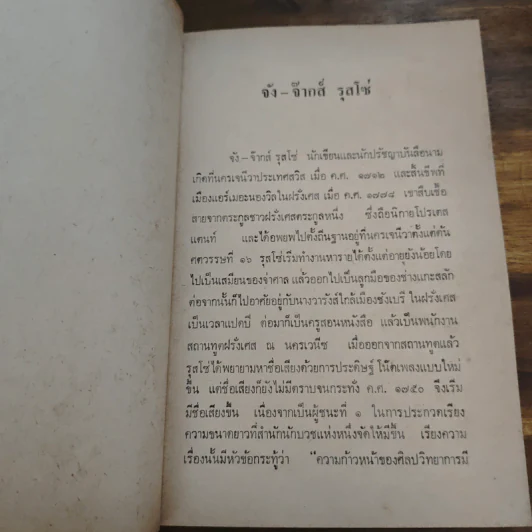 จัง – จ๊ากส์ รุสโซ่
จัง – จ๊ากส์ รุสโซ่ นักเขียนและนักปรัชญาบันลือนาม
เกิดที่นครเจนีวาประเทศสวิส เมื่อ ค.ศ. ๑๗๑๒ และสิ้นชีพที่
เมืองแอร์เมอะนองวิลในฝรั่งเศส เมื่อ ค.ศ. ๑๗๗๘ เขาสืบเชื้อ
สายจากตระกูลชาวฝรั่งเศสตระกูลหนึ่ง ซึ่งถือนิกายโปรเตส
แตนท์ และได้อพยพไปตั้งถิ่นฐานอยู่ที่นครเจนีวาตั้งแต่ต้น
ศตวรรษที่ ๑๖ รุสโซ่เริ่มทำงานหารายได้ตั้งแต่อายุยังน้อยโดย
ไปเป็นเสมียนของจ่าศาล แล้วออกไปเป็นลูกมือของช่างแกะสลัก
ต่อจากนั้นก็ไปอาศัยอยู่กับนางวารังส์ใกล้เมืองชังเบรี ในฝรั่งเศส
เป็นเวลาแปดปี ต่อมาก็เป็นครูสอนหนังสือ แล้วเป็นพนักงาน
สถานทูตฝรั่งเศส ณ นครเวนีซ เมื่อออกจากสถานทูตแล้ว
รุสโซ่ได้พยายามหาชื่อเสียงด้วยการประดิษฐ์ โน๊ตเพลงแบบใหม่
ขึ้น แต่ชื่อเสียงก็ยังไม่มีตราบจนกระทั่ง ค.ศ. ๑๗๕๐ จึงเริ่ม
มีชื่อเสียงขึ้น เนื่องจากเป็นผู้ชนะที่ ๑ ในการประกวดเรียง
ความขนาดยาวที่สำนักนักบวชแห่งหนึ่งจัดให้มีขึ้น เรียงความ
เรื่องนั้นมีหัวข้อกระทู้ว่า “ความก้าวหน้าของศิลปวิทยาการมี